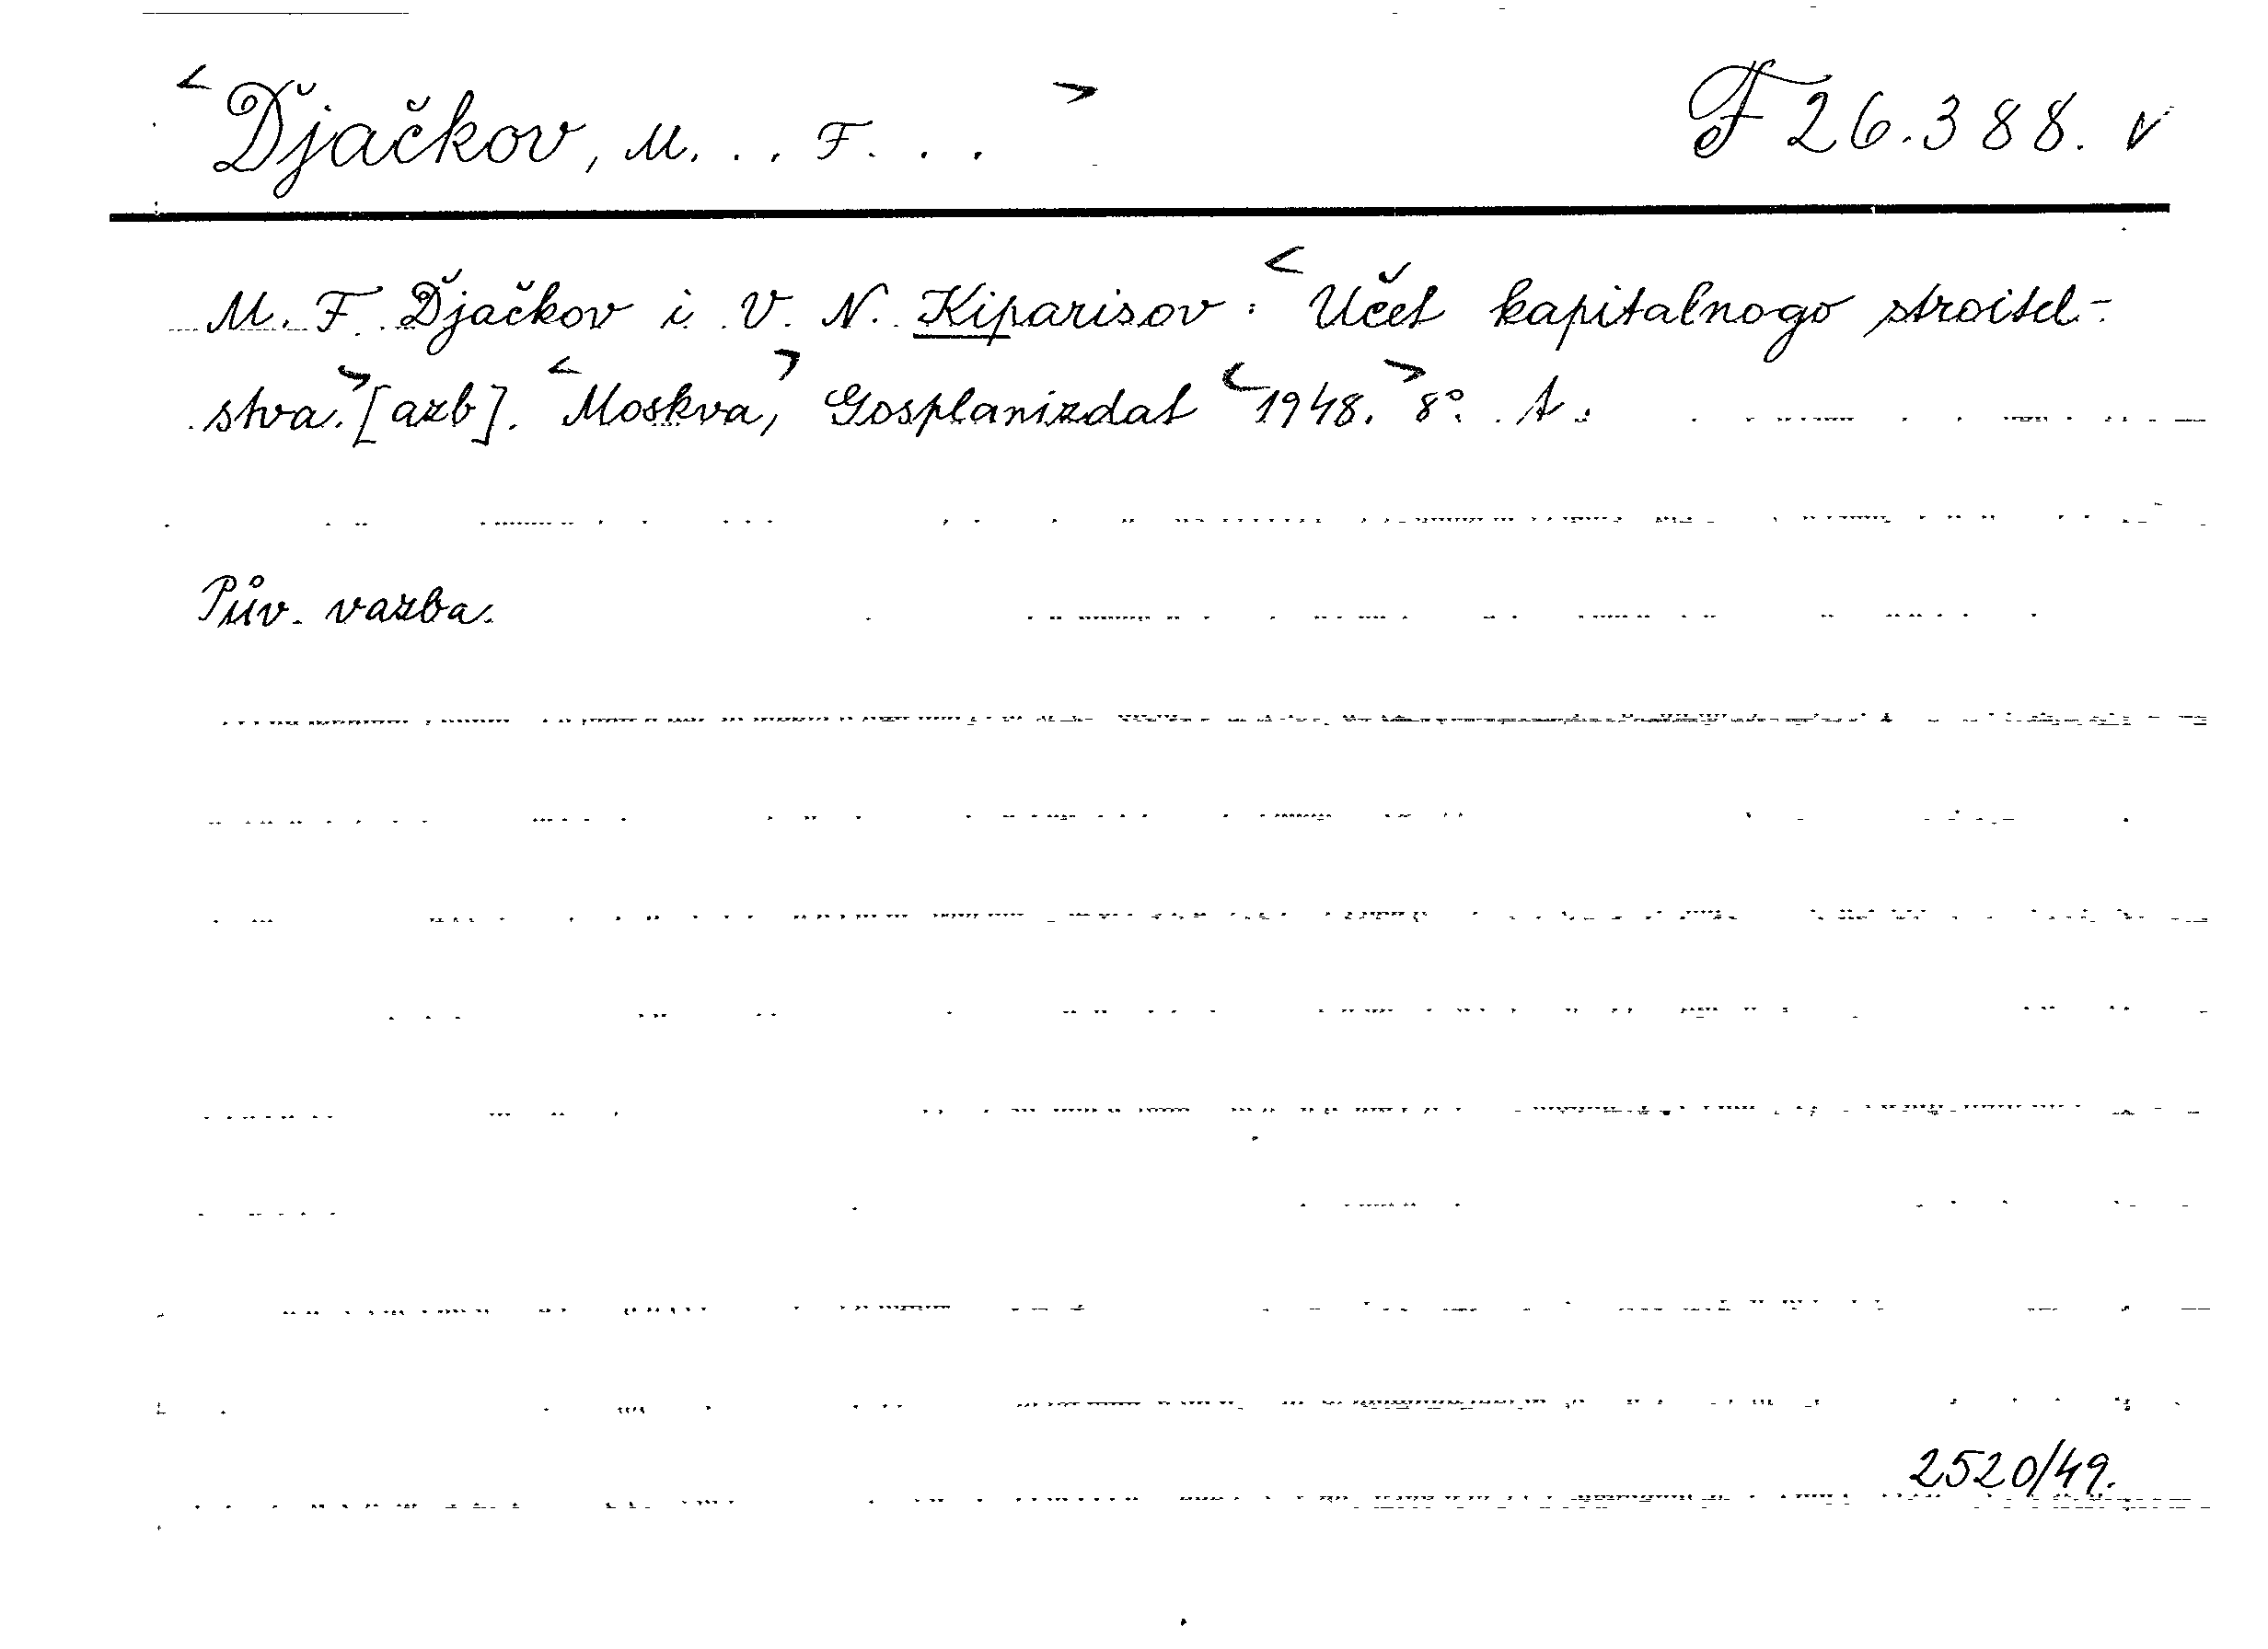 <Ďjačkov, M. . . F. . . .> F 26.388. v
M. F. Ďjačkov i V. N. Kiparisov: <Učet kapitalnogo stroitel-
stva.> [azb]. <Moskva,> Gosplanizdat <1948.> 8°. A.
Pův. vazba.
2520/49.